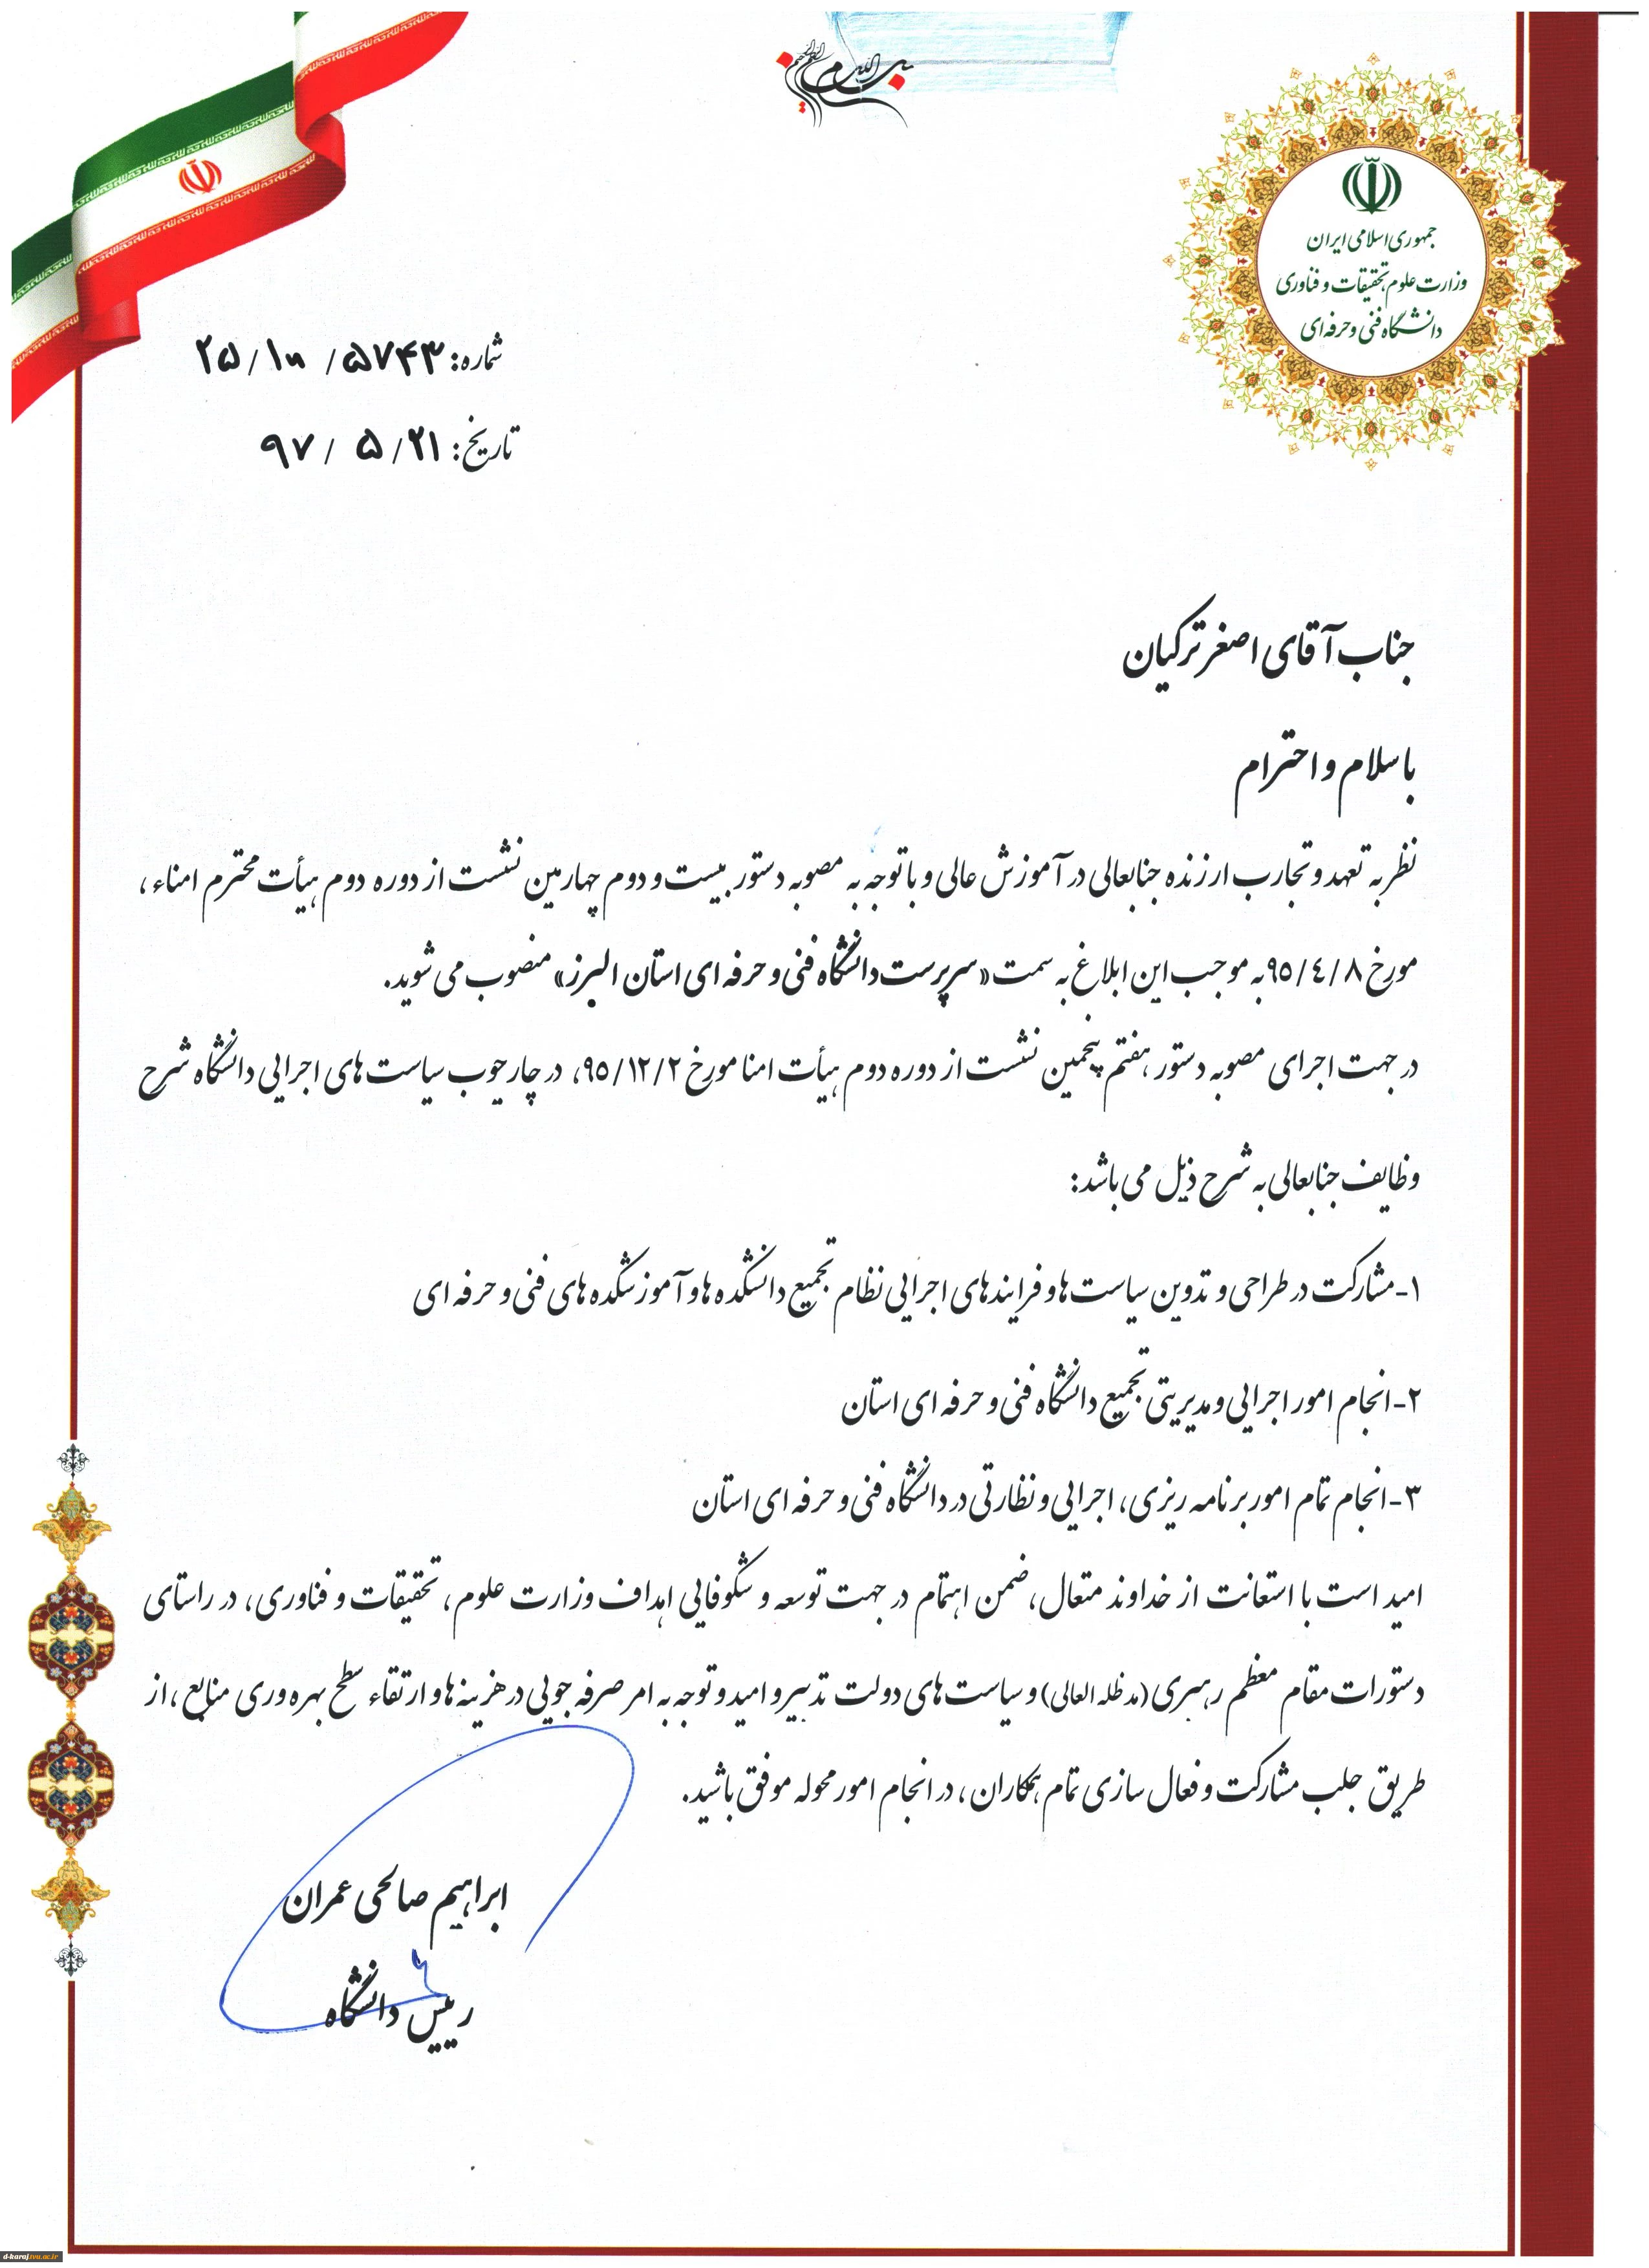 بسم الله الرحمن الرحیم
جمهوری اسلامی ایران
وزارت علوم، تحقیقات و فناوری
دانشگاه فنی و حرفه ای
شماره: ۵۷۴۳ / /۲۵
تاریخ: ۲۱/ ۵ / ۹۷
جناب آقای اصغر ترکیان
با سلام و احترام
نظر به تعهد و تجارب ارزنده جنابعالی در آموزش عالی و با توجه به مصوبه دستور بیست و دوم چهارمین نشست از دوره دوم هیأت محترم امناء ،
مورخ ۹۵/۴/۸ به موجب این ابلاغ به سمت «سرپرست دانشگاه فنی و حرفه ای استان البرز» منصوب می شوید.
در جهت اجرای مصوبه دستور هفتم پنجمین نشست از دوره دوم هیأت امنا مورخ ۹۵/۱۲/۲، در چارچوب سیاست های اجرایی دانشگاه شرح
وظایف جنابعالی به شرح ذیل می باشد:
۱-مشارکت در طراحی و تدوین سیاست ها و فرایندهای اجرایی نظام تجمیع دانشکده ها و آموزشکده های فنی و حرفه ای
۲-انجام امور اجرایی و مدیریتی تجمیع دانشگاه فنی و حرفه ای استان
۳-انجام تمام امور برنامه ریزی، اجرایی و نظارتی در دانشگاه فنی و حرفه ای استان
امید است با استعانت از خداوند متعال، ضمن اهتمام در جهت توسعه و شکوفایی اهداف وزارت علوم، تحقیقات و فناوری، در راستای
دستورات مقام معظم رهبری (مدظله العالی) و سیاست های دولت تدبیر و امید و توجه به امر صرفه جویی در هزینه ها و ارتقاء سطح بهره وری منابع ،از
طریق جلب مشارکت و فعال سازی تمام همکاران ، در انجام امور محوله موفق باشید.
ابراهیم صالحی عمران
رییس دانشگاه
d-karaj.tvu.ac.ir